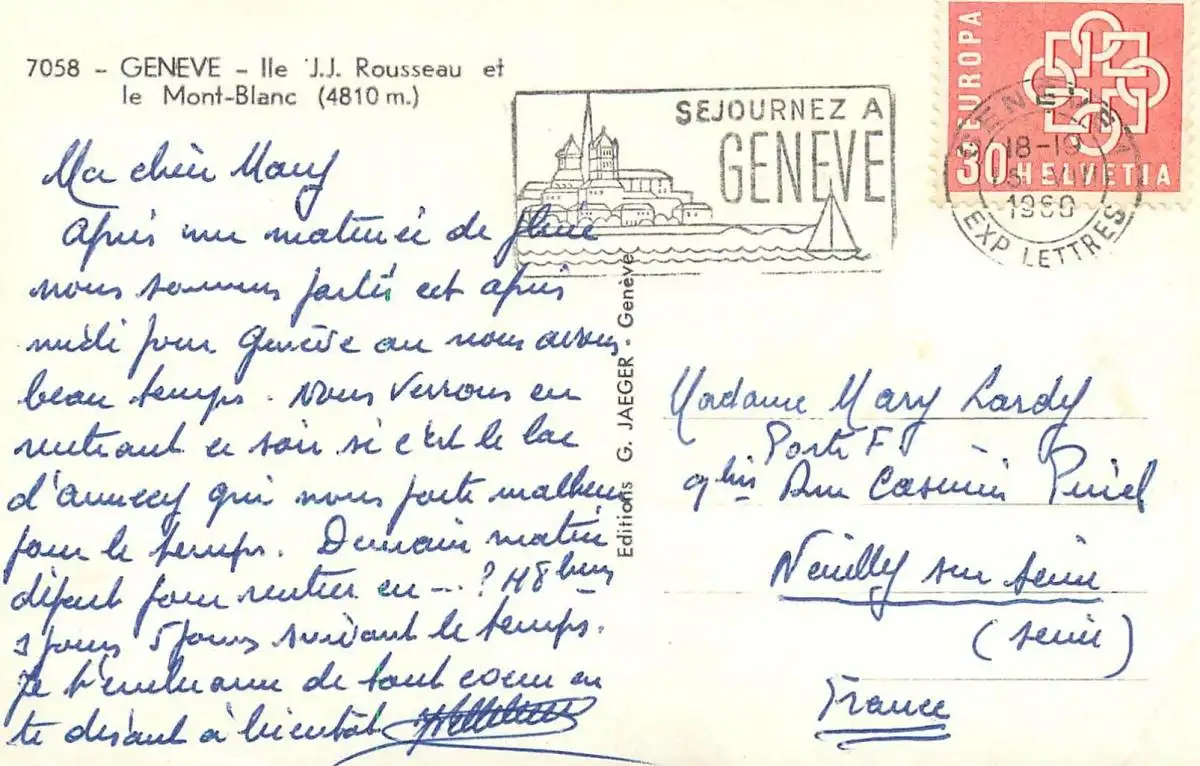 7058 - GENEVE - Ile J.J. Rousseau et
le Mont-Blanc (4810 m.)
SEJOURNEZ A
GENEVE
EUROPA
30 HELVETIA
GENEVE
18-19
1960
EXP. LETTRES
Ma chère Mary
Après une matinée de pluie
nous sommes partis cet après
midi pour Genève ou nous avons
beau temps. Nous verrons en
rentrant ce soir si c'est le lac
d'annecy qui nous porte malheur
pour le temps. Demain matin
départ pour rentrer en
jours 5 jours suivant le temps.
Je t'embrasse de tout coeur en
te disant à bientôt
Editions G. JAEGER - Genève
Madame Mary Lardy
Porte F
9 bis Rue Casimir Pinel
Neuilly sur Seine
(Seine)
France